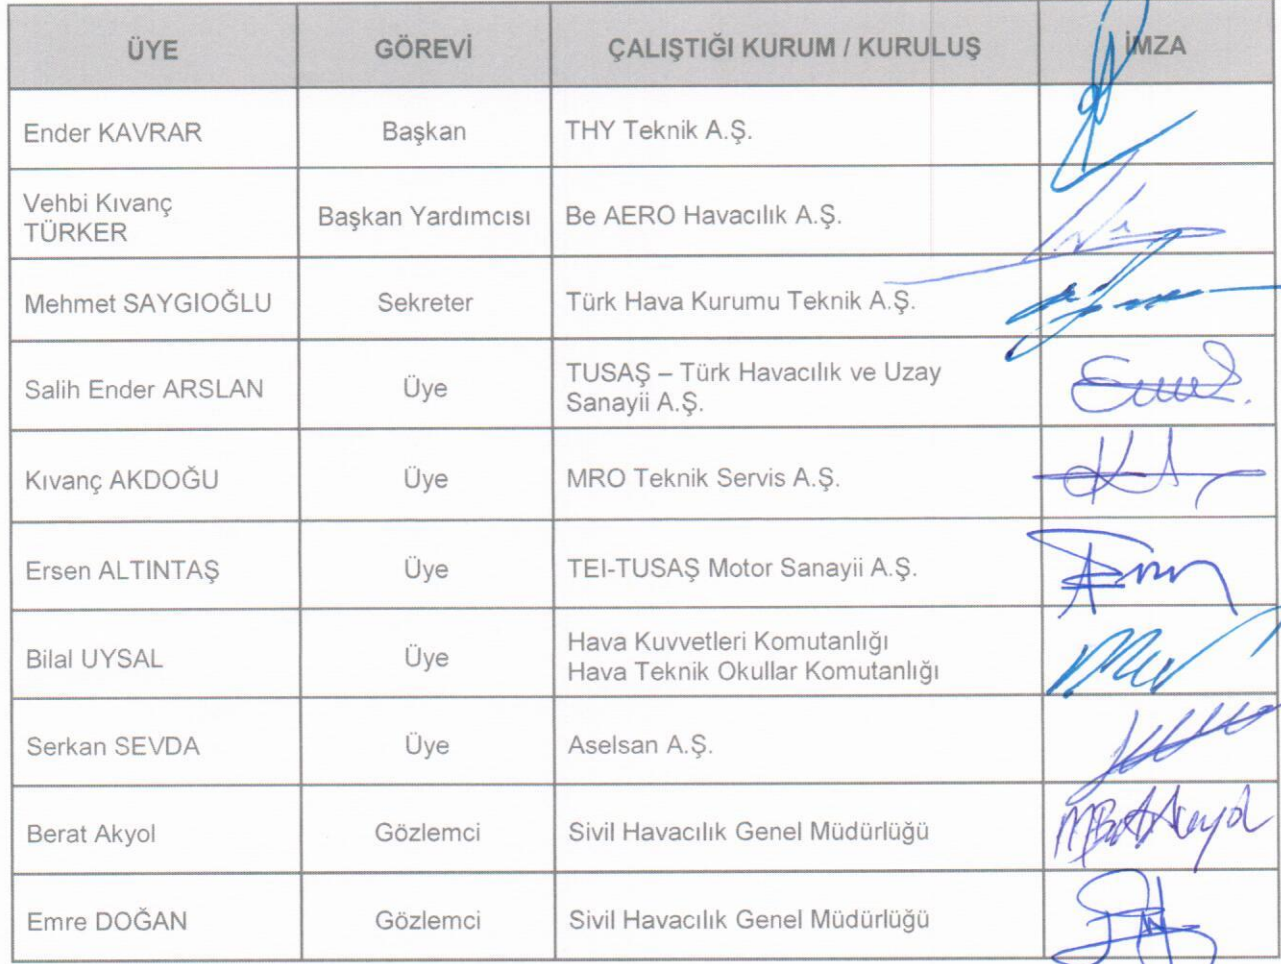 ÜYE GÖREVİ ÇALIŞTIĞI KURUM / KURULUŞ İMZA
Ender KAVRAR Başkan THY Teknik A.Ş.
Vehbi Kıvanç
TÜRKER Başkan Yardımcısı Be AERO Havacılık A.Ş.
Mehmet SAYGIOĞLU Sekreter Türk Hava Kurumu Teknik A.Ş.
Salih Ender ARSLAN Üye TUSAŞ – Türk Havacılık ve Uzay
Sanayii A.Ş.
Kıvanç AKDOĞU Üye MRO Teknik Servis A.Ş.
Ersen ALTINTAŞ Üye TEI-TUSAŞ Motor Sanayii A.Ş.
Bilal UYSAL Üye Hava Kuvvetleri Komutanlığı
Hava Teknik Okullar Komutanlığı
Serkan SEVDA Üye Aselsan A.Ş.
Berat Akyol Gözlemci Sivil Havacılık Genel Müdürlüğü
Emre DOĞAN Gözlemci Sivil Havacılık Genel Müdürlüğü